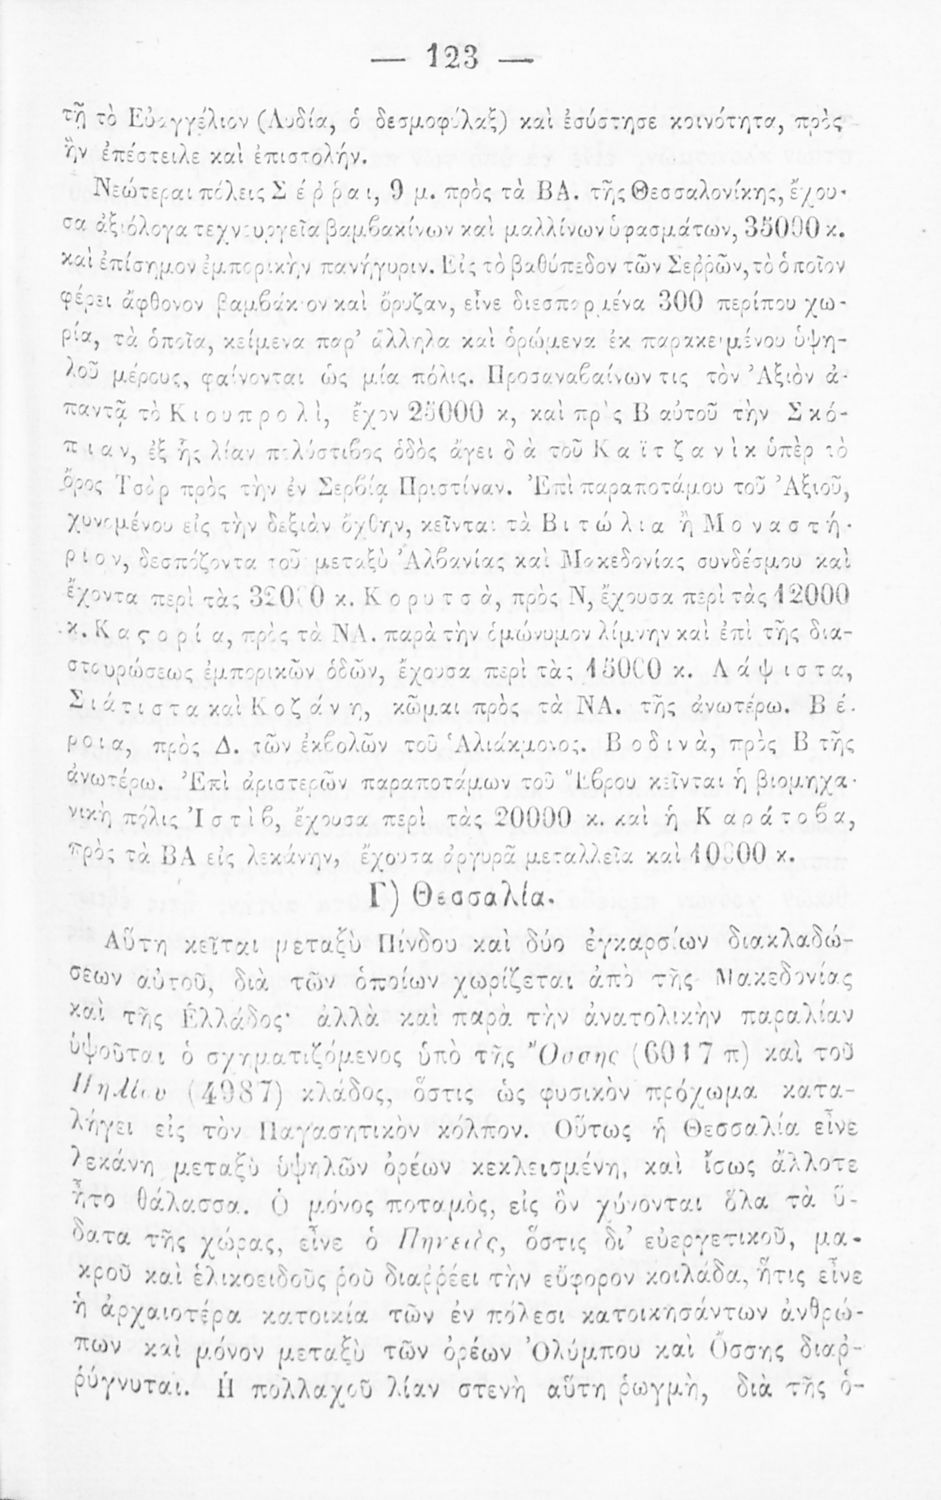 — 123 —
τῇ τὸ Εὐαγγέλιον (Λυδία, ὁ δεσμοφύλαξ) καὶ ἐσύστησε κοινότητα, πρὸς
ἣν ἐπέστειλε καὶ ἐπιστολήν.
Νεώτεραι πόλεις Σέῤῥαι, 9 μ. πρὸς τὰ ΒΑ. τῆς Θεσσαλονίκης, ἔχου-
σα ἀξιόλογα τεχνουργεῖα βαμβακίνων καὶ μαλλίνων ὑφασμάτων, 35000 κ.
καὶ ἐπίσημον ἐμπορικὴν πανήγυριν. Εἰς τὸ βαθύπεδον τῶν Σεῤῥῶν, τὸ ὁποῖον
φέρει ἄφθονον βαμβάκιον καὶ ὄρυζαν, εἶνε διεσπαρμένα 300 περίπου χω-
ρία, τὰ ὁποῖα, κείμενα παρ’ ἄλληλα καὶ ὁρώμενα ἐκ παρακειμένου ὑψη-
λοῦ μέρους, φαίνονται ὡς μία πόλις. Προσαναβαίνων τις τὸν Ἀξιὸν ἀ-
παντᾷ τὸ Κιουπρολὶ, ἔχον 25000 κ, καὶ πρὸς Β αὐτοῦ τὴν Σκό-
πιαν, ἐξ ἧς λίαν πολύστιβος ὁδὸς ἄγει διὰ τοῦ Καϊτζανὶκ ὑπὲρ τὸ
ὄρος Τσὸρ πρὸς τὴν ἐν Σερβίᾳ Πριστίναν. Ἐπὶ παραποτάμου τοῦ Ἀξιοῦ,
χυνομένου εἰς τὴν δεξιὰν ὄχθην, κεῖνται τὰ Βιτώλια ἢ Μοναστή-
ριον, δεσπόζοντα τοῦ μεταξὺ Ἀλβανίας καὶ Μακεδονίας συνδέσμου καὶ
ἔχοντα περὶ τὰς 32000 κ. Κορυτσὰ, πρὸς Ν, ἔχουσα περὶ τὰς 12000
κ. Καςορία, πρὸς τὰ ΝΔ. παρὰ τὴν ὁμώνυμον λίμνην καὶ ἐπὶ τῆς δια-
σταυρώσεως ἐμπορικῶν ὁδῶν, ἔχουσα περὶ τὰς 15000 κ. Λάψιστα,
Σιάτιστα καὶ Κοζάνη, κῶμαι πρὸς τὰ ΝΑ. τῆς ἀνωτέρω. Βέ-
ροια, πρὸς Δ. τῶν ἐκβολῶν τοῦ Ἁλιάκμονος. Βοδινὰ, πρὸς Β τῆς
ἀνωτέρω. Ἐπὶ ἀριστερῶν παραποτάμων τοῦ Ἕβρου κεῖνται ἡ βιομηχα-
νικὴ πόλις Ἰστὶβ, ἔχουσα περὶ τὰς 20000 κ. καὶ ἡ Καράτοβα,
πρὸς τὰ ΒΑ εἰς λεκάνην, ἔχουσα ἀργυρᾶ μεταλλεῖα καὶ 10000 κ.
Γ) Θεσσαλία.
Αὕτη κεῖται μεταξὺ Πίνδου καὶ δύο ἐγκαρσίων διακλαδώ-
σεων αὐτοῦ, διὰ τῶν ὁποίων χωρίζεται ἀπὸ τῆς Μακεδονίας
καὶ τῆς Ἑλλάδος· ἀλλὰ καὶ παρὰ τὴν ἀνατολικὴν παραλίαν
ὑψοῦται ὁ σχηματιζόμενος ὑπὸ τῆς Ὄσσης (6017 π) καὶ τοῦ
Πηλίου (4987) κλάδος, ὅστις ὡς φυσικὸν πρόχωμα κατα-
λήγει εἰς τὸν Παγασητικὸν κόλπον. Οὕτως ἡ Θεσσαλία εἶνε
λεκάνη μεταξὺ ὑψηλῶν ὀρέων κεκλεισμένη, καὶ ἴσως ἄλλοτε
ἦτο θάλασσα. Ὁ μόνος ποταμὸς, εἰς ὃν χύνονται ὅλα τὰ ὕ-
δατα τῆς χώρας, εἶνε ὁ Πηνειὸς, ὅστις δι’ εὐεργετικοῦ, μα-
κροῦ καὶ ἑλικοειδοῦς ῥοῦ διαῤῥέει τὴν εὔφορον κοιλάδα, ἥτις εἶνε
ἡ ἀρχαιοτέρα κατοικία τῶν ἐν πόλεσι κατοικησάντων ἀνθρώ-
πων καὶ μόνον μεταξὺ τῶν ὀρέων Ὀλύμπου καὶ Ὄσσης διαῤ-
ῥύγνυται. Ἡ πολλαχοῦ λίαν στενὴ αὕτη ῥωγμὴ, διὰ τῆς ὁ-